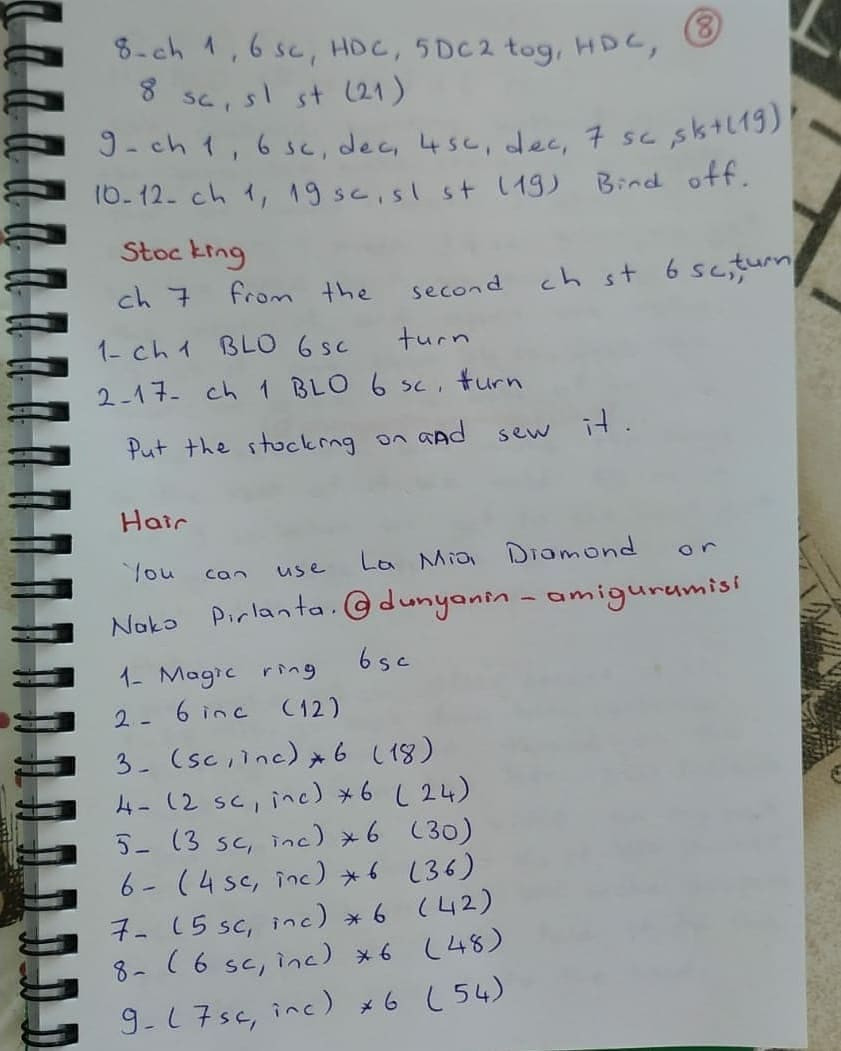 8
8-ch 1, 6 sc, HDC, 5DC2 tog, HDC,
8 sc, sl st (21)
9- ch 1, 6 sc, dec, 4sc, dec, 7 sc, slst(19)
10-12- ch 1, 19 sc, sl st (19) Bind off.
Stocking
ch 7 from the second ch st 6 sc, turn
1- ch 1 BLO 6 sc turn
2-17- ch 1 BLO 6 sc, turn
Put the stocking on and sew it.
Hair
You can use La Mia Diamond or
Nako Pırlanta. @dunyanin-amigurumisi
1- Magic ring 6sc
2- 6 inc (12)
3- (sc, inc) *6 (18)
4- (2 sc, inc) *6 (24)
5- (3 sc, inc) *6 (30)
6- (4 sc, inc) *6 (36)
7- (5 sc, inc) *6 (42)
8- (6 sc, inc) *6 (48)
9- (7sc, inc) *6 (54)